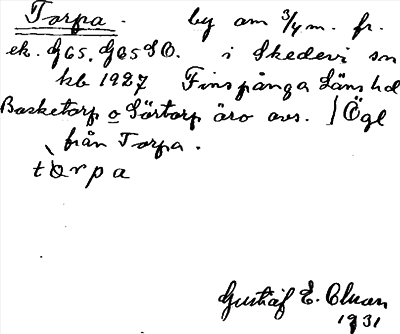 Torpa. by am 3/4 m. fr.
ek. G65, G65SO. i Skedevi sn
kb 1927 Finspånga Läns hd
Basketorp o Sörtorp äro avs. / Ögl
från Torpa.
tòrpa
Gustaf E.
1931